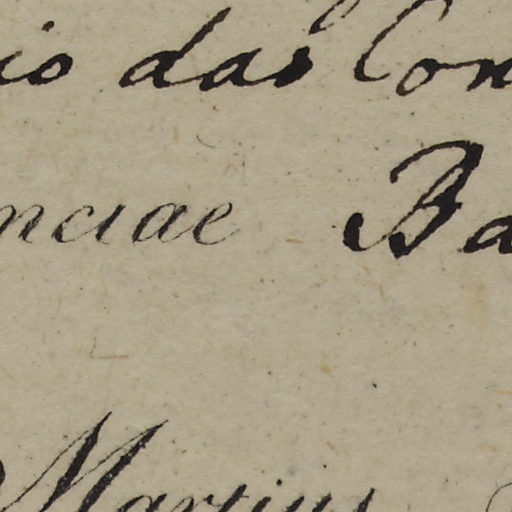 io das Con
nciae Ba
Martius